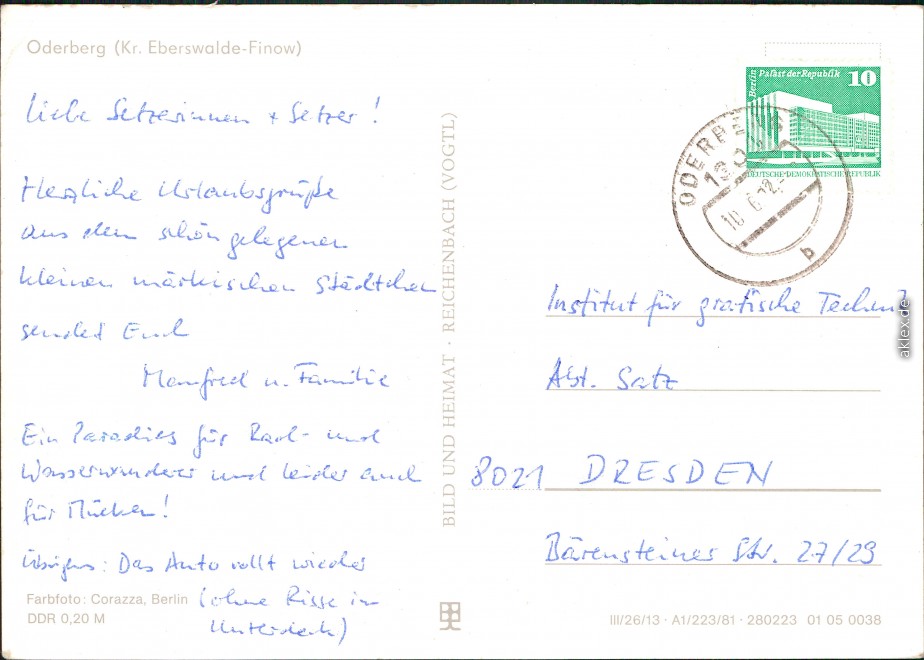 Oderberg (Kr. Eberswalde-Finow)
Liebe Setzerinnen + Setzer!
Herzliche Urlaubsgrüße
aus dem schön gelegenen
kleinen märkischen Städtchen
sendet Euch
Manfred u. Familie
Ein Paradies für Rad- und
Wasserwanderer und leider auch
für Mücken!
Übrigens: Das Auto rollt wieder
(ohne Risse im
Unterdeck)
Farbfoto: Corazza, Berlin
DDR 0,20 M
BILD UND HEIMAT · REICHENBACH (VOGTL)
Berlin Palast der Republik 10
DEUTSCHE DEMOKRATISCHE REPUBLIK
ODERBERG
10.6.82
b
Institut für grafische Technik
Abt. Satz
8021 DRESDEN
Bärensteiner Str. 27/29
III/26/13 · A1/223/81 · 280223 01 05 0038
aklex.de